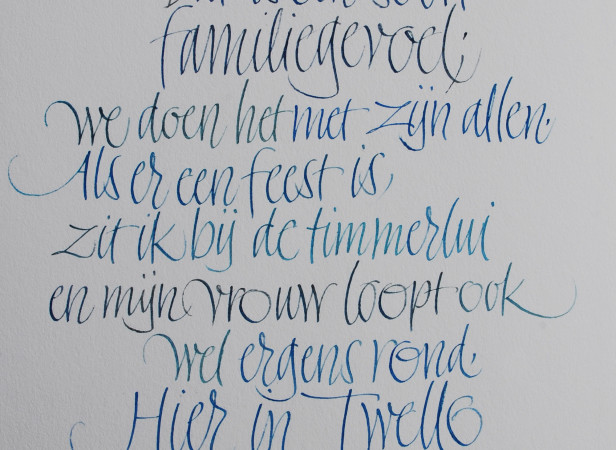 familiegevoel;
we doen het met zijn allen.
Als er een feest is,
zit ik bij de timmerlui
en mijn vrouw loopt ook
wel ergens rond.
Hier in Twello